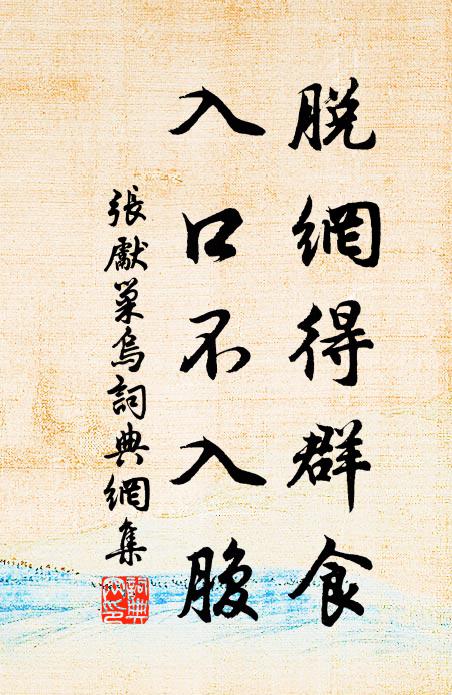 脫網得群食
入口不入腹
張獻巢烏詞典網集